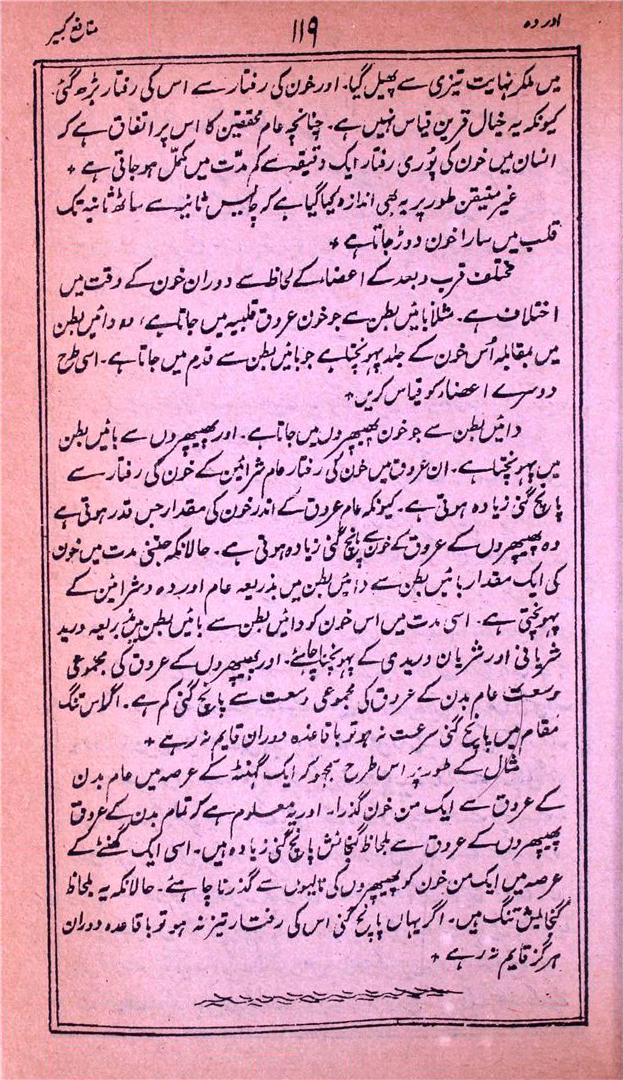 اوردہ
۱۱۹
منافع کبیر
میں ملکر نہایت تیزی سے پھیل گیا۔ اور خون کی رفتار سے اس کی رفتار بڑھ گئی
کیونکہ یہ خیال قرین قیاس نہیں ہے۔ چنانچہ عام محققین کا اس پر اتفاق ہے کہ
انسان میں خون کی پُوری رفتار ایک دقیقہ سے کم مدّت میں مکمّل ہو جاتی ہے +
غیر متیقن طور پر یہ بھی اندازہ کیا گیا ہے کہ چالیس ثانیہ سے ساٹھ ثانیہ تک
قلب میں سارا خون دوڑ جاتا ہے +
مختلف قرب و بعد کے اعضاء کے لحاظ سے دوران خون کے وقت میں
اختلاف ہے۔ مثلاً بائیں بطن سے جو خون عروق قلبیہ میں جاتا ہے، وہ دائیں بطن
میں بمقابلہ اُس خون کے جلد پہونچتا ہے جو بائیں بطن سے قدم میں جاتا ہے۔ اسی طرح
دوسرے اعضاء کو قیاس کریں +
دائیں بطن سے جو خون پھیپھڑوں میں جاتا ہے۔ اور پھیپھڑوں سے بائیں بطن
میں پہونچتا ہے۔ ان عروق میں خون کی رفتار عام شرائین کے خون کی رفتار سے
پانچ گنی زیادہ ہوتی ہے۔ کیونکہ عام عروق کے اندر خون کی مقدار جس قدر ہوتی ہے
وہ پھیپھڑوں کے عروق کے خون سے پانچ گنی زیادہ ہوتی ہے۔ حالانکہ جتنی مدت میں خون
کی ایک مقدار بائیں بطن سے دائیں بطن میں بذریعہ عام اوردہ و شرائین کے
پہونچتی ہے۔ اسی مدت میں اس خون کو دائیں بطن سے بائیں بطن میں بذریعہ ورید
شریانی اور شریان وریدی کے پہونچنا چاہئے۔ اور پھیپھڑوں کے عروق کی مجموعی
وسعت عام بدن کے عروق کی مجموعی وسعت سے پانچ گنی کم ہے۔ اگر اس تنگ
مقام میں پانچ گنی سرعت نہ ہو تو باقاعدہ دوران قایم نہ رہے +
مثال کے طور پر اس طرح سمجھو کہ ایک گہنٹہ کے عرصہ میں عام بدن
کے عروق سے ایک من خون گذرا۔ اور یہ معلوم ہے کہ تمام بدن کے عروق
پھیپھڑوں کے عروق سے بلحاظ گنجائش پانچ گنی زیادہ ہیں۔ اسی ایک گھنٹے کے
عرصہ میں ایک من خون کو پھیپھڑوں کی نالیوں سے گذرنا چاہئے۔ حالانکہ یہ بلحاظ
گنجایش تنگ ہیں۔ اگر یہاں پانچ گنی اس کی رفتار تیز نہ ہو تو باقاعدہ دوران
ہرگز قایم نہ رہے +